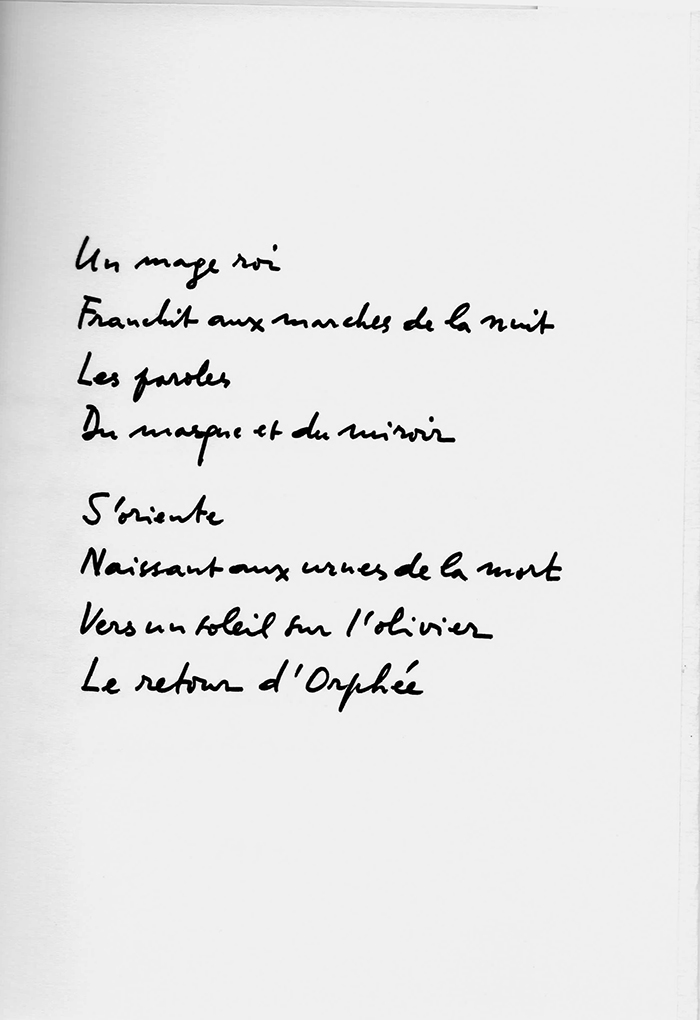 Un mage roi
Franchit aux marches de la nuit
Les paroles
Du masque et du miroir
S'oriente
Naissant aux urnes de la mort
Vers un soleil sur l'olivier
Le retour d'Orphée